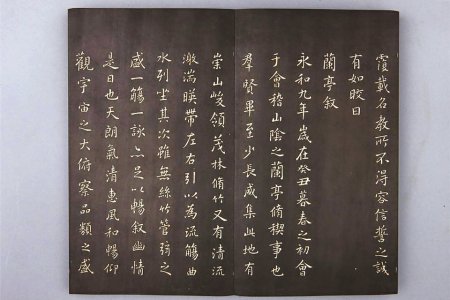 覆載名教所不得容信誓之誠
有如皎日
蘭亭叙
永和九年歲在癸丑暮春之初會
于會稽山陰之蘭亭脩稧事也
羣賢畢至少長咸集此地有
崇山峻領茂林脩竹又有清流
激湍暎帶左右引以為流觴曲
水列坐其次雖無絲竹管弦之
盛一觴一詠亦足以暢叙幽情
是日也天朗氣清惠風和暢仰
觀宇宙之大俯察品類之盛